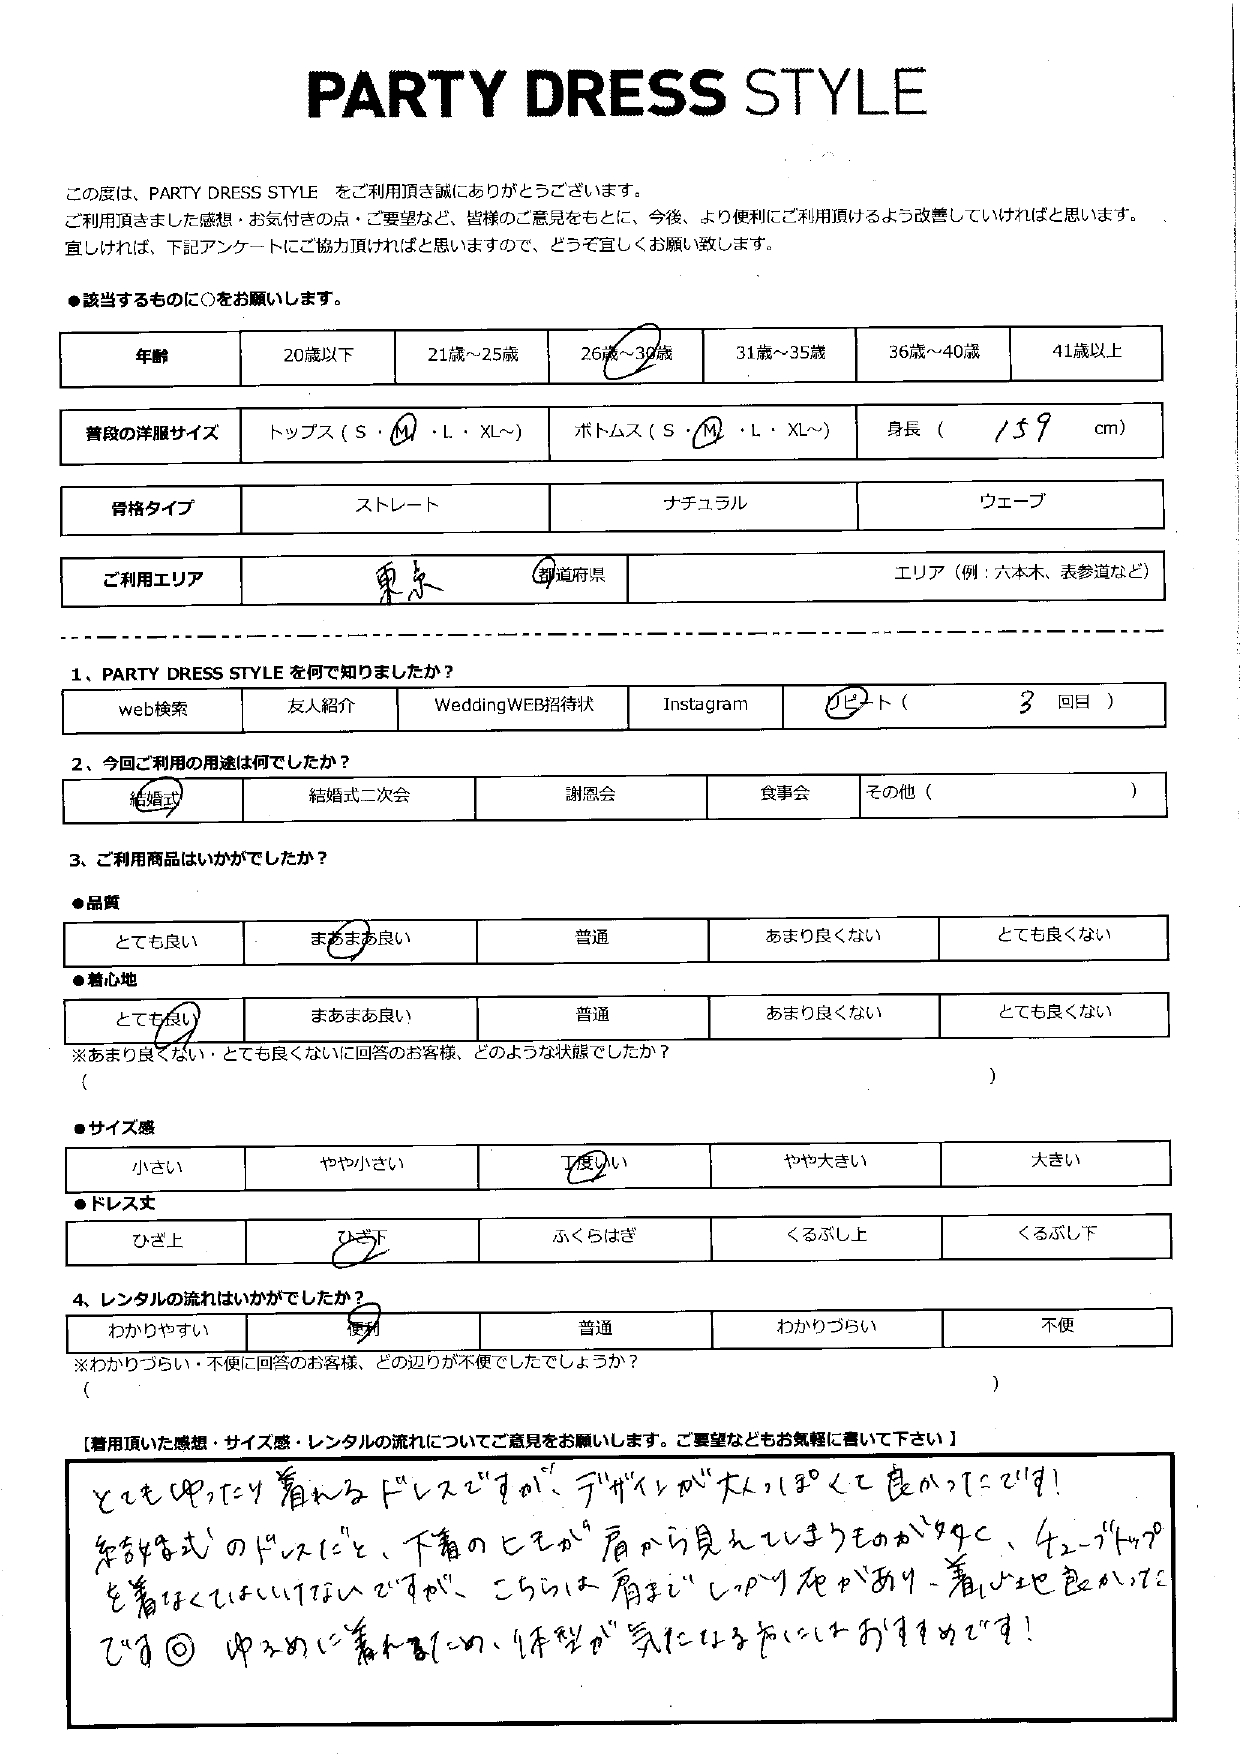 PARTY DRESS STYLE
この度は、PARTY DRESS STYLE をご利用頂き誠にありがとうございます。
ご利用頂きました感想・お気付きの点・ご要望など、皆様のご意見をもとに、今後、より便利にご利用頂けるよう改善していければと思います。
宜しければ、下記アンケートにご協力頂ければと思いますので、どうぞ宜しくお願い致します。
●該当するものに○をお願いします。
年齢 20歳以下 21歳～25歳 26歳～30歳 31歳～35歳 36歳～40歳 41歳以上
普段の洋服サイズ トップス ( S ・ M ・ L ・ XL～) ボトムス ( S ・ M ・ L ・ XL～) 身長 ( 159 cm)
骨格タイプ ストレート ナチュラル ウェーブ
ご利用エリア 東京 都道府県 エリア（例：六本木、表参道など）
1、PARTY DRESS STYLE を何で知りましたか？
web検索 友人紹介 WeddingWEB招待状 Instagram リピート ( 3 回目 )
2、今回ご利用の用途は何でしたか？
結婚式 結婚式二次会 謝恩会 食事会 その他 ( )
3、ご利用商品はいかがでしたか？
●品質
とても良い まあまあ良い 普通 あまり良くない とても良くない
●着心地
とても良い まあまあ良い 普通 あまり良くない とても良くない
※あまり良くない・とても良くないに回答のお客様、どのような状態でしたか？
( )
●サイズ感
小さい やや小さい 丁度いい やや大きい 大きい
●ドレス丈
ひざ上 ひざ下 ふくらはぎ くるぶし上 くるぶし下
4、レンタルの流れはいかがでしたか？
わかりやすい 便利 普通 わかりづらい 不便
※わかりづらい・不便に回答のお客様、どの辺りが不便でしたでしょうか？
( )
【着用頂いた感想・サイズ感・レンタルの流れについてご意見をお願いします。ご要望などもお気軽に書いて下さい 】
とてもゆったり着れるドレスですが、デザインが大人っぽくて良かったです！
結婚式のドレスだと、下着のヒモが肩から見えてしまうものが多く、チューブトップ
を着なくてはいけないですが、こちらは肩までしっかり布があり、着心地良かった
です◎ ゆるめに着れるため、体型が気になる方にはおすすめです！